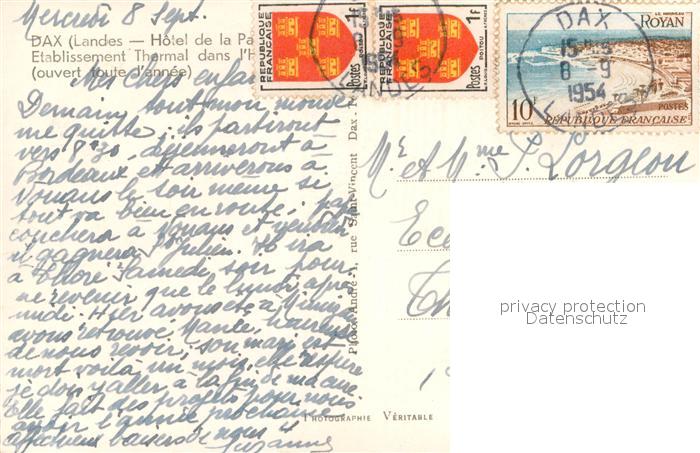 Mercredi 8 Sept.
DAX (Landes — Hôtel de la Pa
Etablissement Thermal dans l'H
(ouvert toute l'année)
Mes chers enfants
Demain tout mon monde
me quitte; ils partiront
vers 8h30, déjeuneront à
Bordeaux et arriveront à
Vouans le soir même si
tout va bien en route;
couchera à Vouans et vendredi
il gagnera St Julien. Il ira
à Samedi soir pour
ne revenir que le lundi après
midi. Hier avons été à
avons retrouvé
de nous revoir, son mari est
mort voilà un mois, elle espère
je dois y aller à la fin de ma cure
Elle fait des projets pour nous
avoir l'année prochaine
affectueux baisers de nous
Suzanne
REPUBLIQUE FRANÇAISE
Postes
1F
POITOU
REPUBLIQUE FRANÇAISE
Postes
1F
POITOU
DAX
15H
8 -9
1954
LANDES
ROYAN
10F
POSTES
REPUBLIQUE FRANÇAISE
Mr et Mme J. Lorgeou
Ec
Th
1
Photo André - 1, rue Saint-Vincent Dax -
PHOTOGRAPHIE VÉRITABLE
privacy protection
Datenschutz